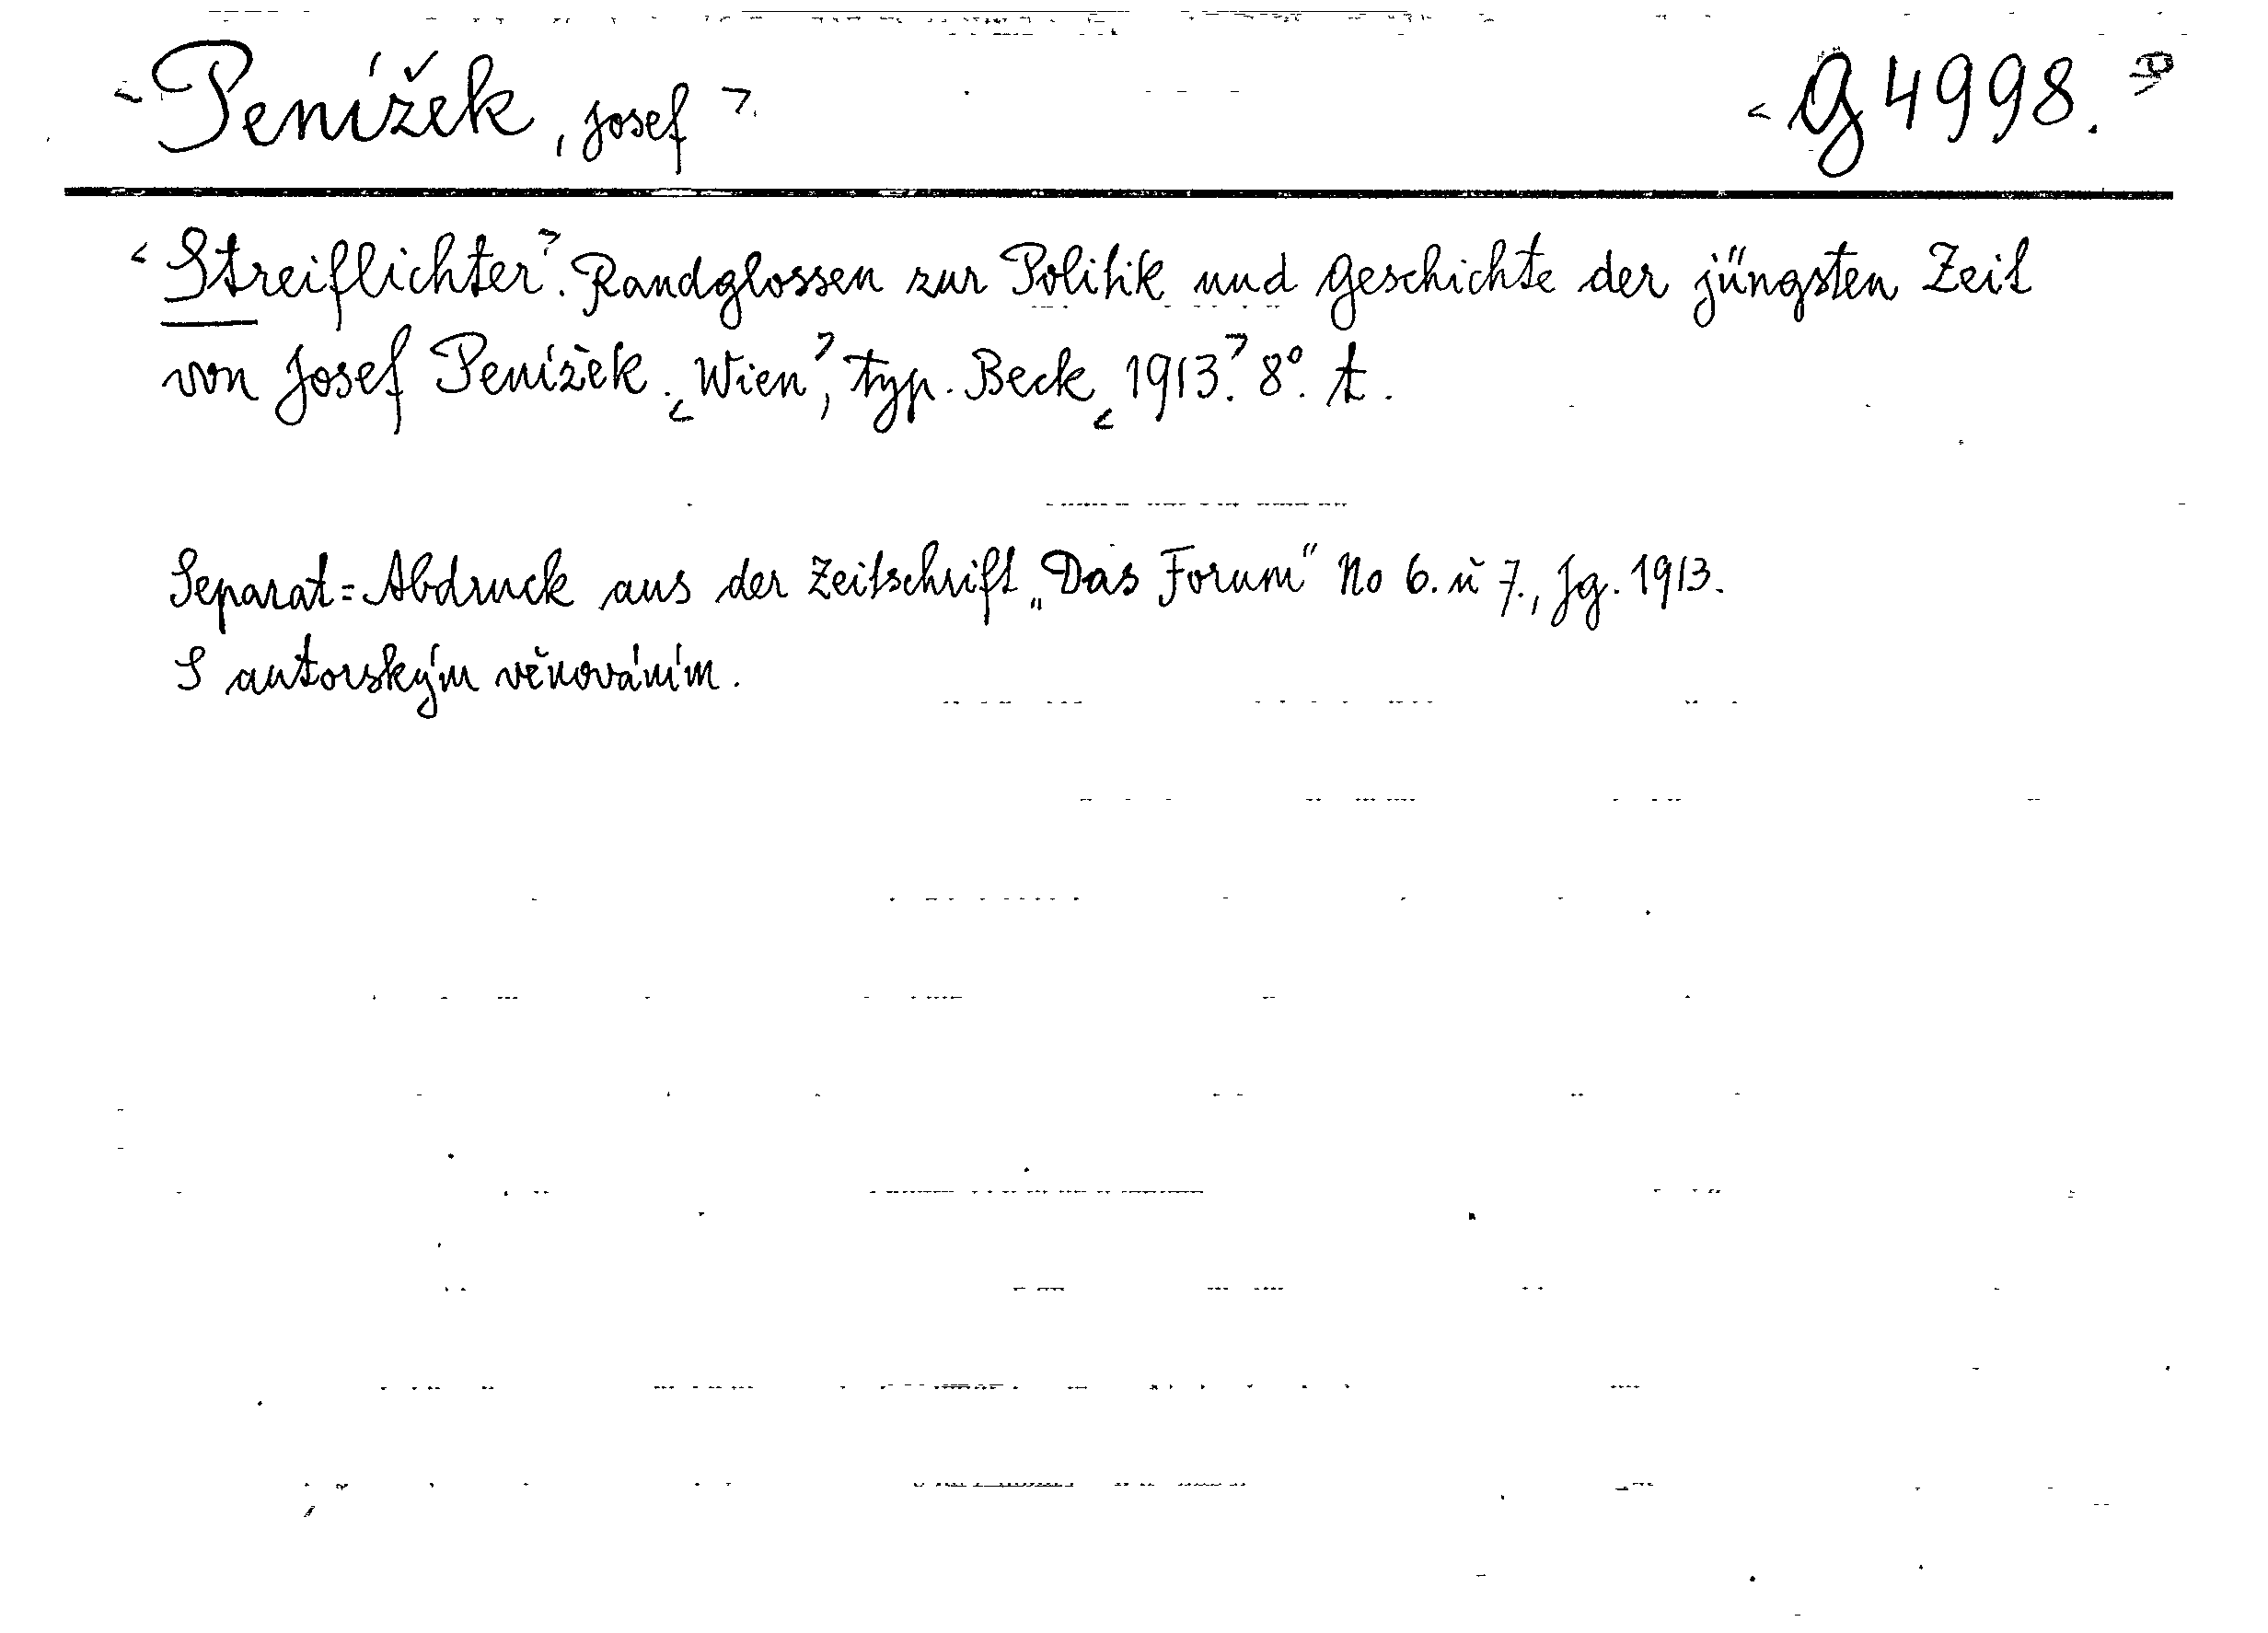 <Penížek, Josef> <G 4998.>
<Streiflichter>. Randglossen zur Politik und Geschichte der jüngsten Zeit
von Josef Penížek. <Wien>, typ. Beck <1913>. 8°. t.
Separat=Abdruck aus der Zeitschrift „Das Forum“ No 6. ŭ 7., Jg. 1913.
S autorským věnováním.